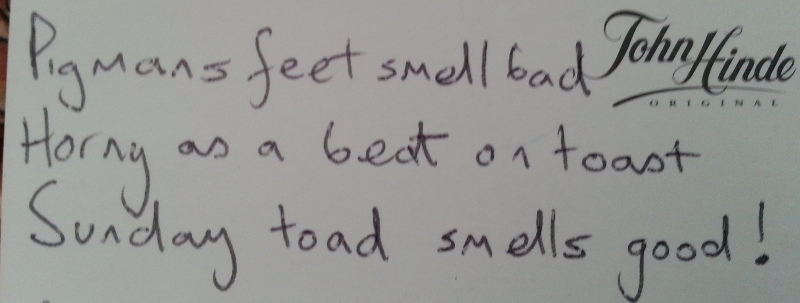 Pigmans feet smell bad
John Hinde
ORIGINAL
Horny as a beat on toast
Sunday toad smells good!